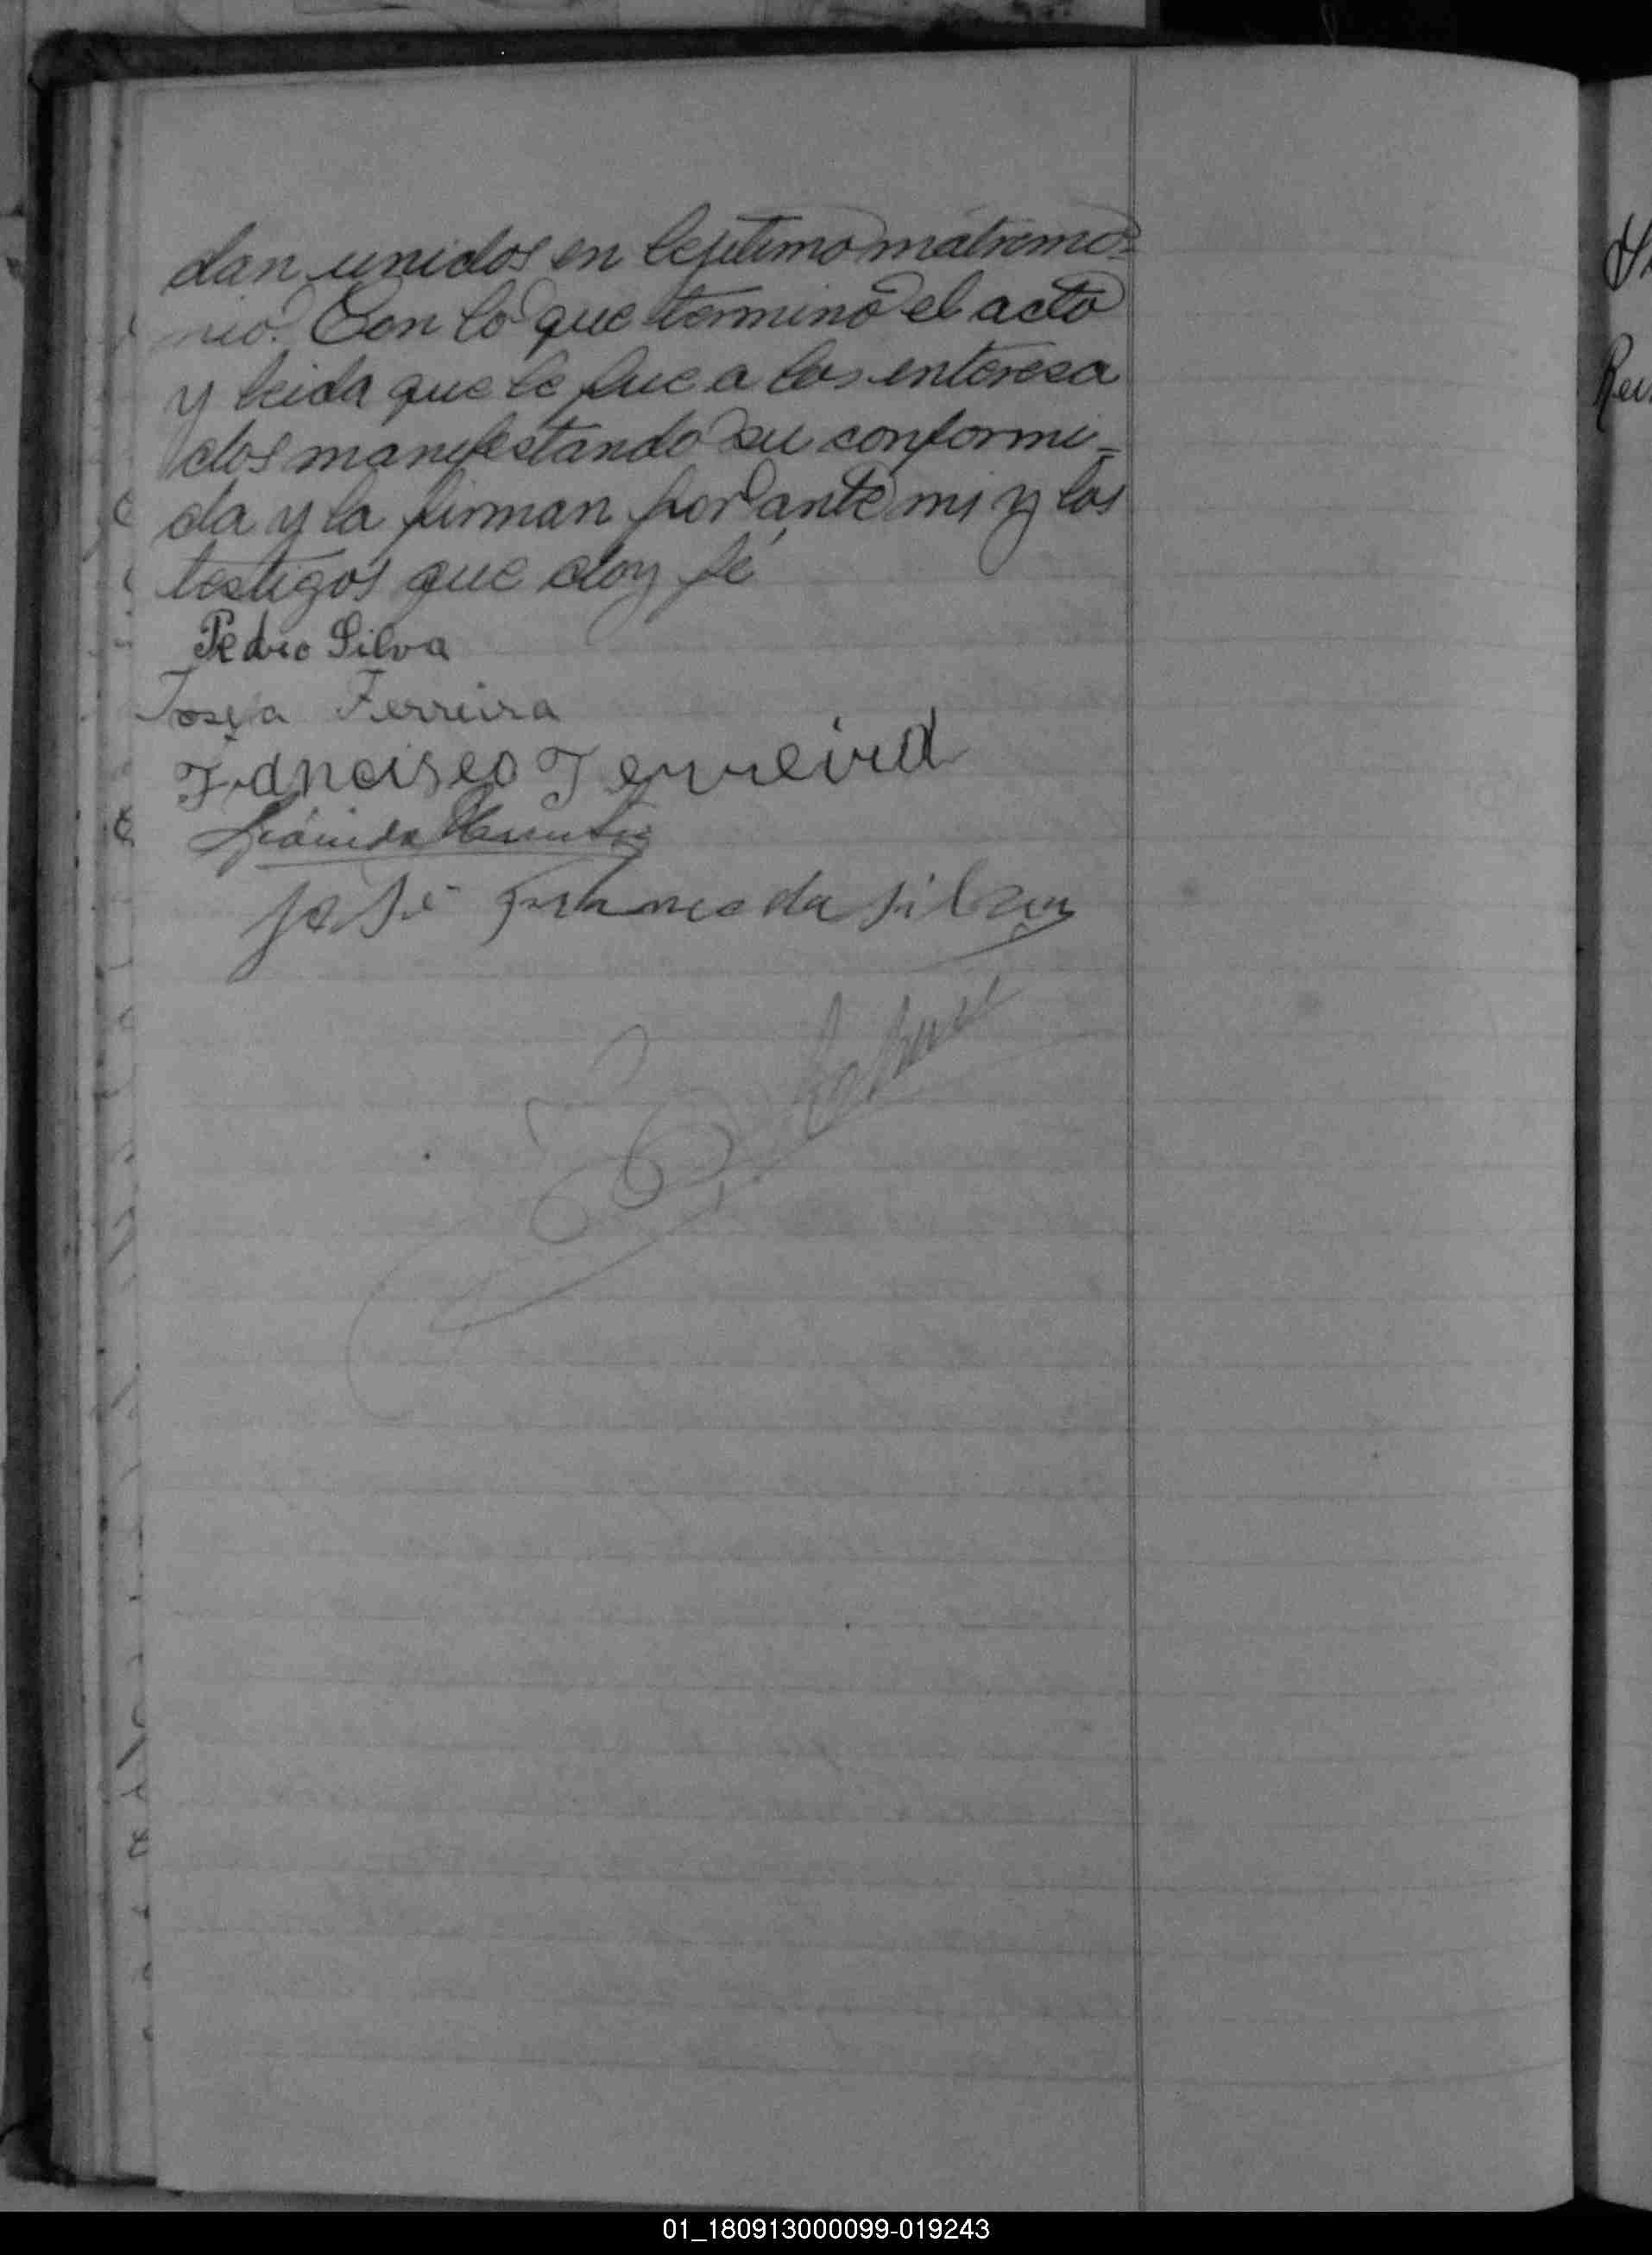 dan unidos en lejitimo matrimo=
nio. Con lo que termino el acto
y leida que le fue a los interesa
dos manifestando su conformi=
da y la firman por ante mi y los
testigos que doy fé
Pedro Silva
Josefa Ferreira
Francisco Ferreira
José da Silva
Rei
01_180913000099-019243